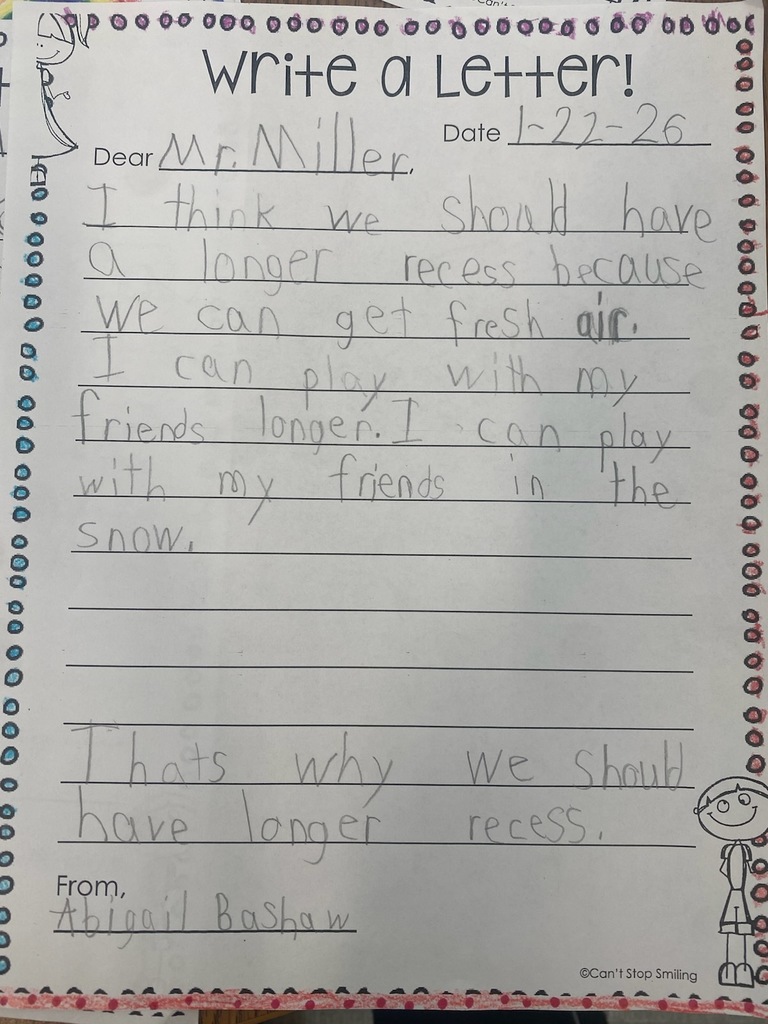 Write a Letter!
Date 1-22-26
Dear Mr. Miller,
I think we should have
a longer recess because
we can get fresh air.
I can play with my
friends longer. I can play
with my friends in the
snow.
Thats why we should
have longer recess.
From,
Abigail Bashaw
©Can't Stop Smiling